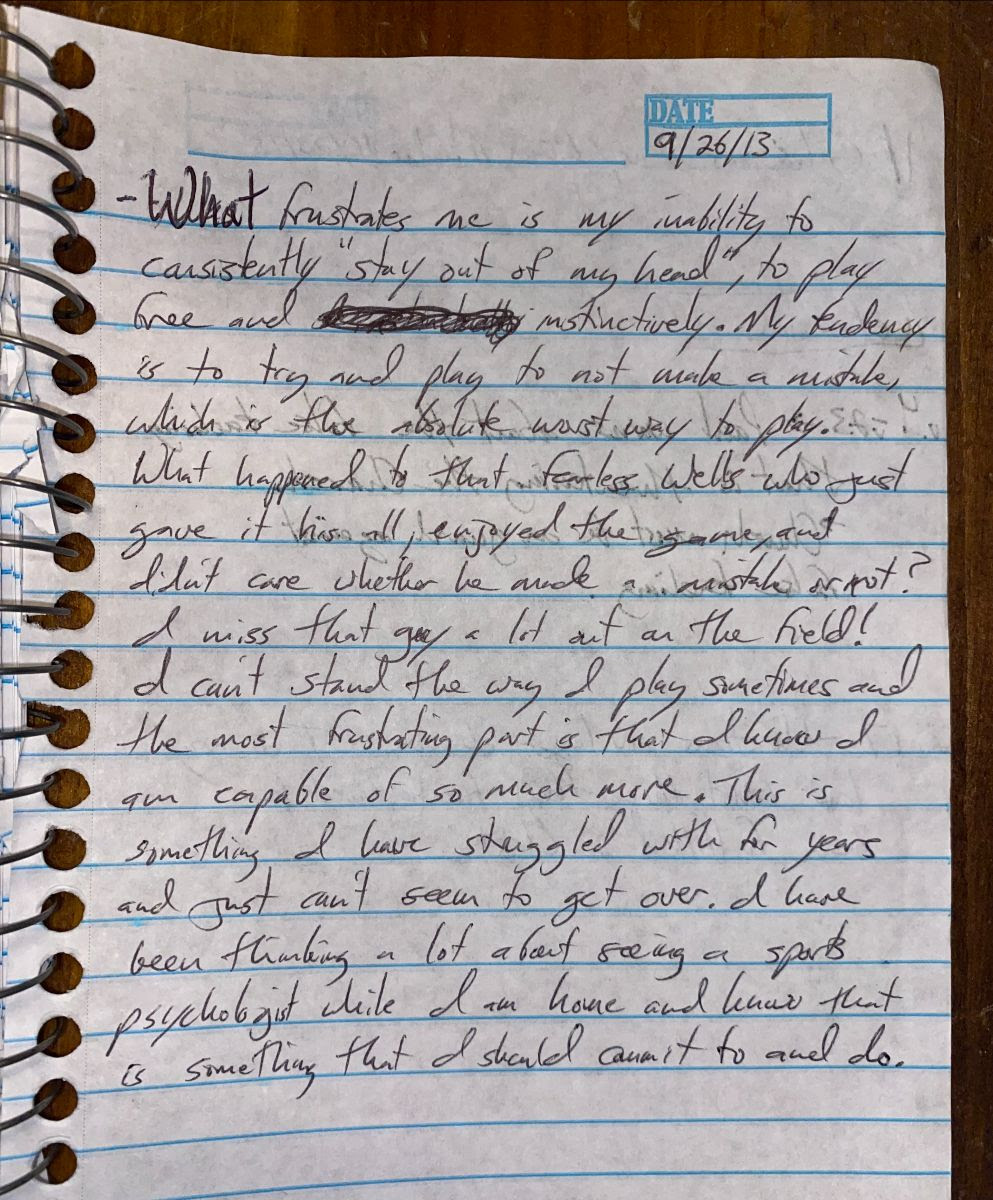 DATE
9/26/13
- What frustrates me is my inability to
consistently "stay out of my head", to play
free and instinctively. My tendency
is to try and play to not make a mistake,
which is the absolute worst way to play.
What happened to that fearless Wells who just
gave it his all, enjoyed the game, and
didn't care whether he made a mistake or not?
I miss that guy a lot out on the field!
I can't stand the way I play sometimes and
the most frustrating part is that I know I
am capable of so much more. This is
something I have struggled with for years
and just can't seem to get over. I have
been thinking a lot about seeing a sports
psychologist while I am home and know that
is something that I should commit to and do.